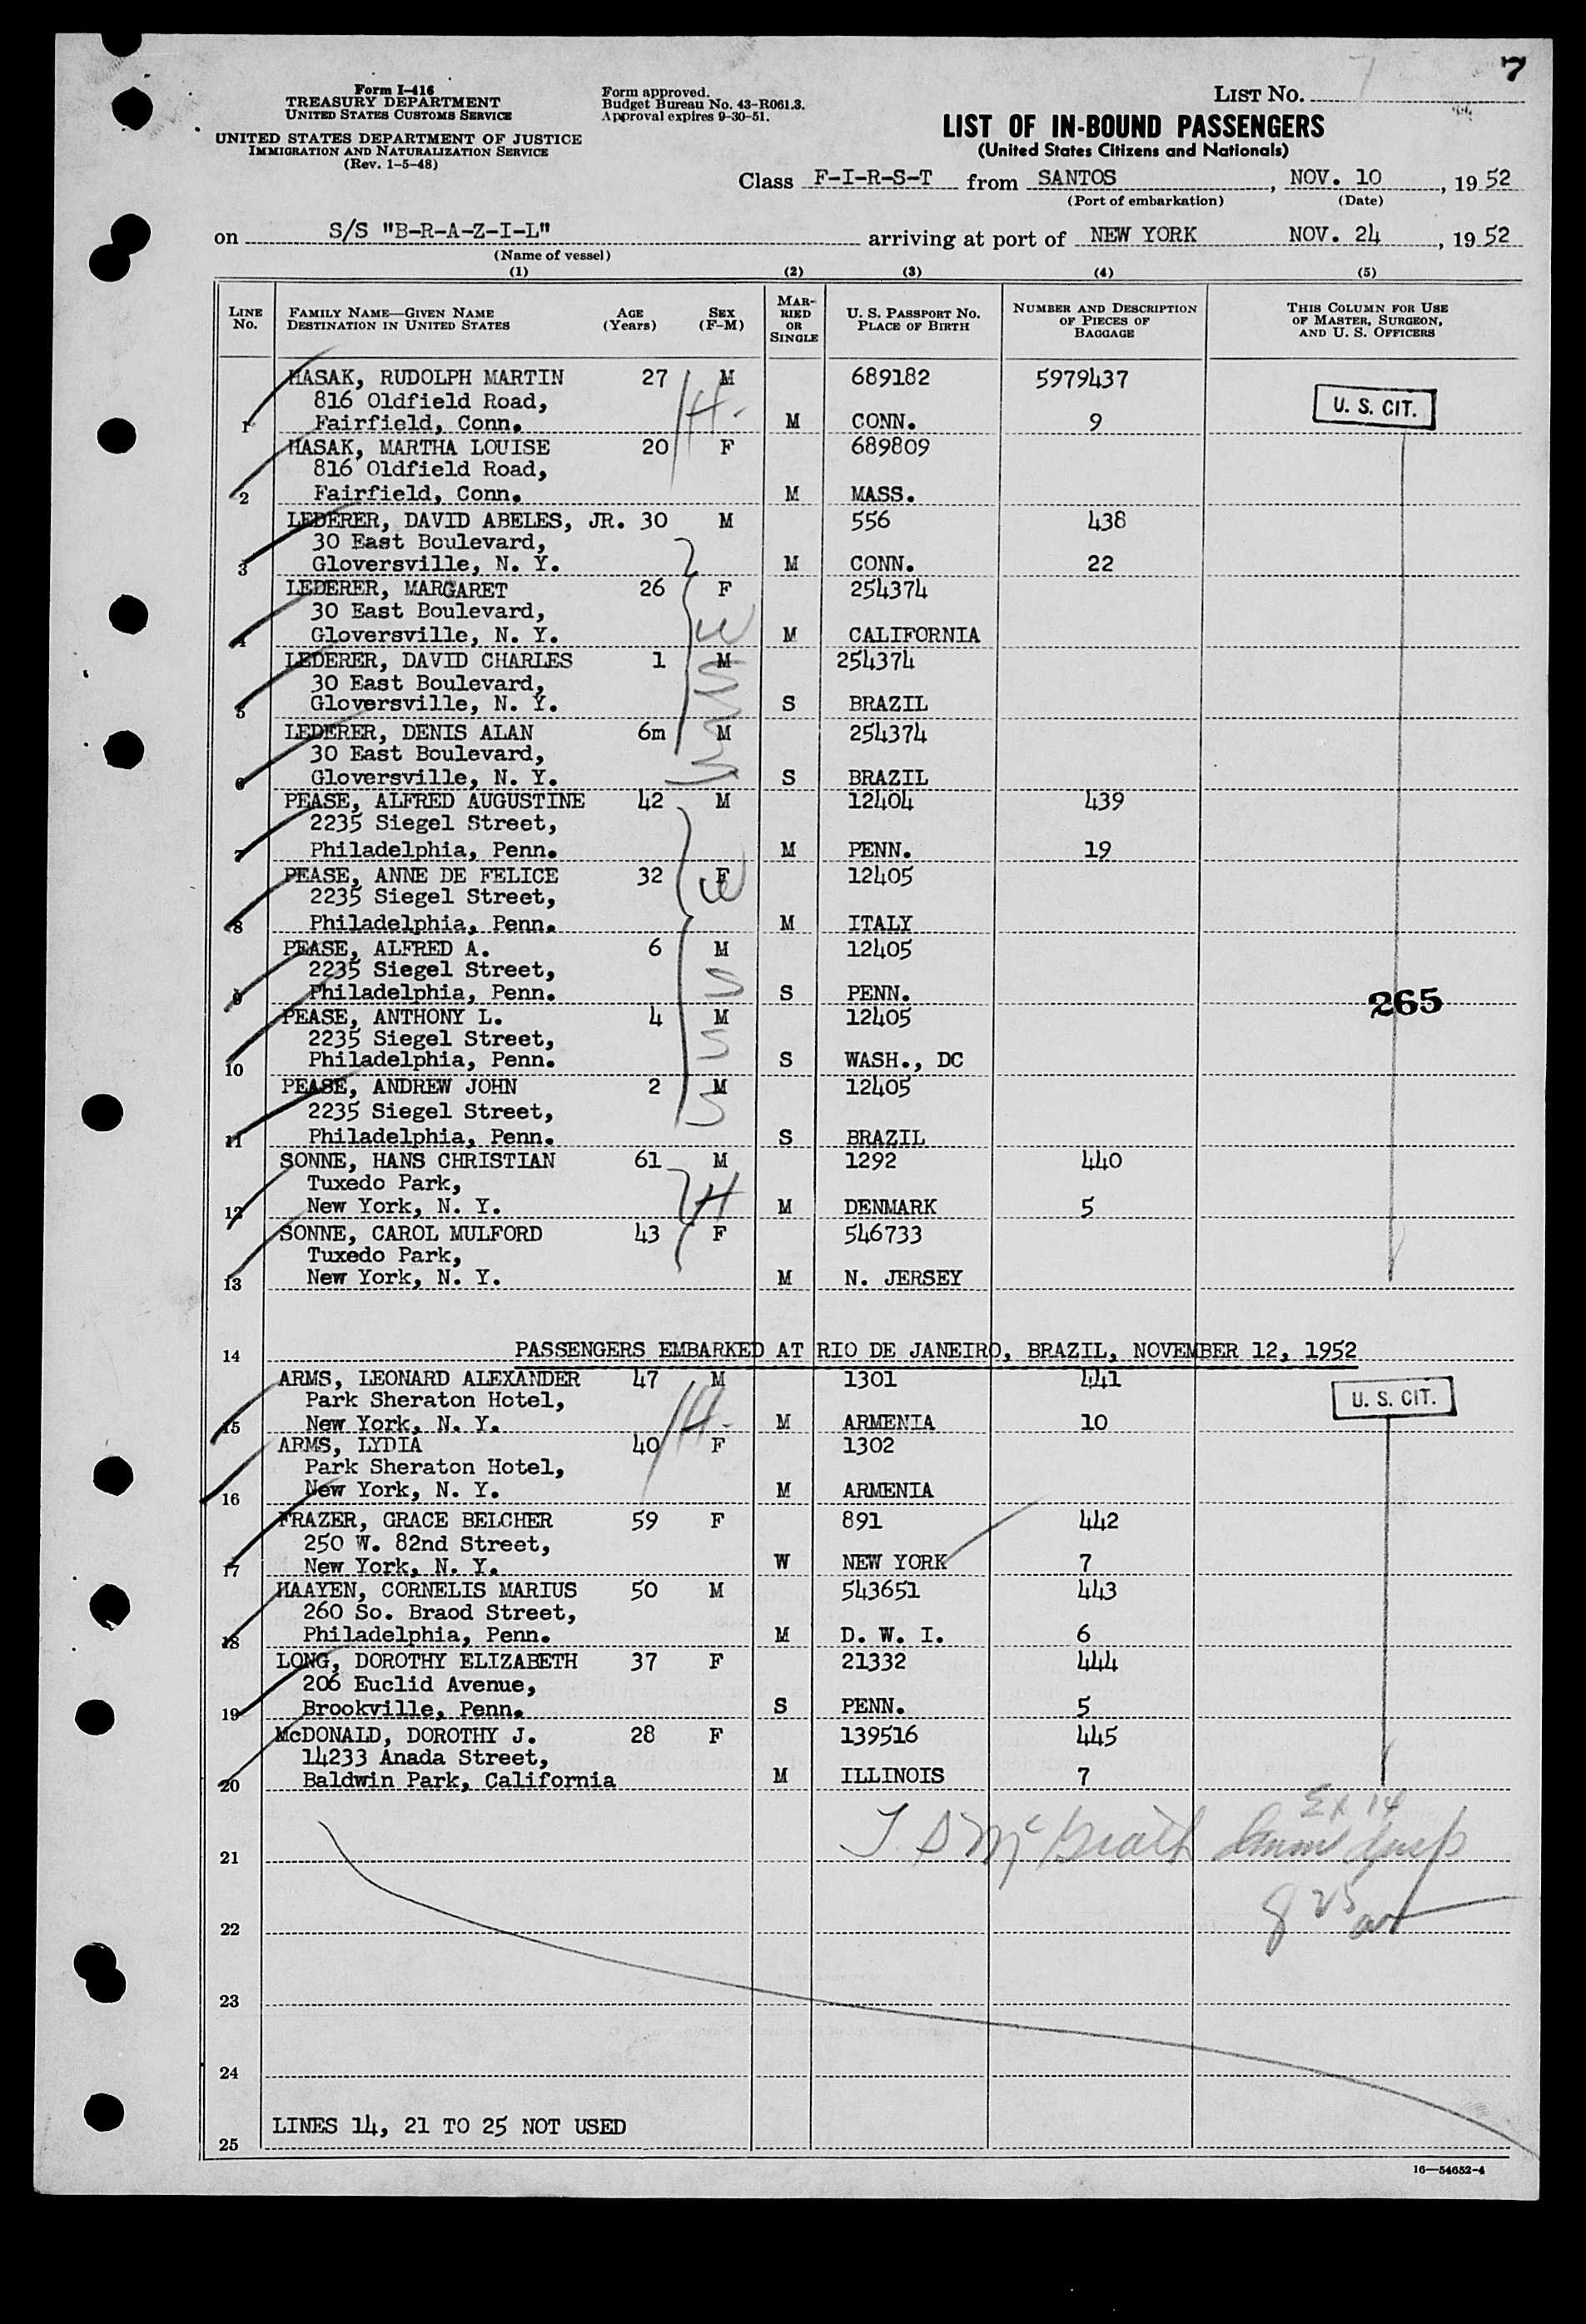 7
Form I-416
TREASURY DEPARTMENT
UNITED STATES CUSTOMS SERVICE
UNITED STATES DEPARTMENT OF JUSTICE
IMMIGRATION AND NATURALIZATION SERVICE
(Rev. 1-5-48)
Form approved.
Budget Bureau No. 43-R061.3.
Approval expires 9-30-51.
LIST NO. 7
LIST OF IN-BOUND PASSENGERS
(United States Citizens and Nationals)
Class F-I-R-S-T from SANTOS, NOV. 10, 1952
(Port of embarkation) (Date)
on S/S "B-R-A-Z-I-L" arriving at port of NEW YORK NOV. 24, 1952
(Name of vessel)
(1) (2) (3) (4) (5)
LINE NO. FAMILY NAME—GIVEN NAME DESTINATION IN UNITED STATES AGE (Years) SEX (F-M) MARRIED OR SINGLE U. S. PASSPORT NO. PLACE OF BIRTH NUMBER AND DESCRIPTION OF PIECES OF BAGGAGE THIS COLUMN FOR USE OF MASTER, SURGEON, AND U. S. OFFICERS
HASAK, RUDOLPH MARTIN 27 M 689182 5979437
816 Oldfield Road, U. S. CIT.
1 Fairfield, Conn. M CONN. 9
HASAK, MARTHA LOUISE 20 F 689809
816 Oldfield Road,
2 Fairfield, Conn. M MASS.
LEDERER, DAVID ABELES, JR. 30 M 556 438
30 East Boulevard,
3 Gloversville, N. Y. M CONN. 22
LEDERER, MARGARET 26 F 254374
30 East Boulevard,
4 Gloversville, N. Y. M CALIFORNIA
LEDERER, DAVID CHARLES 1 M 254374
30 East Boulevard,
5 Gloversville, N. Y. S BRAZIL
LEDERER, DENIS ALAN 6m M 254374
30 East Boulevard,
6 Gloversville, N. Y. S BRAZIL
PEASE, ALFRED AUGUSTINE 42 M 12404 439
2235 Siegel Street,
7 Philadelphia, Penn. M PENN. 19
PEASE, ANNE DE FELICE 32 F 12405
2235 Siegel Street,
8 Philadelphia, Penn. M ITALY
PEASE, ALFRED A. 6 M 12405
2235 Siegel Street,
9 Philadelphia, Penn. S PENN. 265
PEASE, ANTHONY L. 4 M 12405
2235 Siegel Street,
10 Philadelphia, Penn. S WASH., DC
PEASE, ANDREW JOHN 2 M 12405
2235 Siegel Street,
11 Philadelphia, Penn. S BRAZIL
SONNE, HANS CHRISTIAN 61 M 1292 440
Tuxedo Park,
12 New York, N. Y. M DENMARK 5
SONNE, CAROL MULFORD 43 F 546733
Tuxedo Park,
13 New York, N. Y. M N. JERSEY
14 PASSENGERS EMBARKED AT RIO DE JANEIRO, BRAZIL, NOVEMBER 12, 1952
ARMS, LEONARD ALEXANDER 47 M 1301 441
Park Sheraton Hotel, U. S. CIT.
15 New York, N. Y. M ARMENIA 10
ARMS, LYDIA 40 F 1302
Park Sheraton Hotel,
16 New York, N. Y. M ARMENIA
FRAZER, GRACE BELCHER 59 F 891 442
250 W. 82nd Street,
17 New York, N. Y. W NEW YORK 7
HAAYEN, CORNELIS MARIUS 50 M 543651 443
260 So. Braod Street,
18 Philadelphia, Penn. M D. W. I. 6
LONG, DOROTHY ELIZABETH 37 F 21332 444
206 Euclid Avenue,
19 Brookville, Penn. S PENN. 5
McDONALD, DOROTHY J. 28 F 139516 445
14233 Anada Street,
20 Baldwin Park, California M ILLINOIS 7
21 McGrath
22
23
24
LINES 14, 21 TO 25 NOT USED
25
16—54652-4